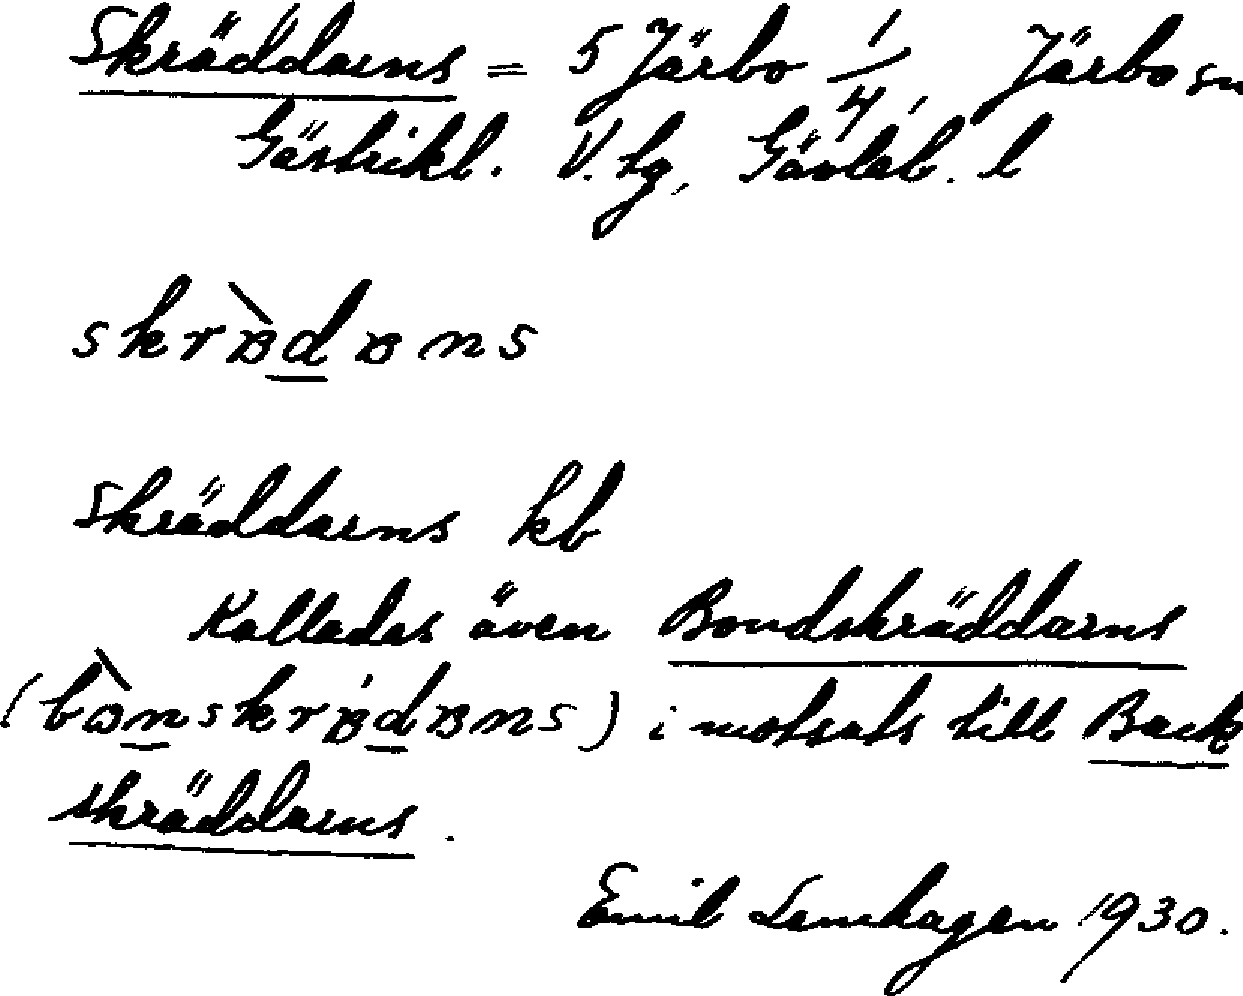 Skräddarns = 5 Järbo 1/4, Järbo sn
Gästrikl. V. tg, Gävleb. l
skràdans
Skräddarns kb
Kallades även Bondskräddarns
i motsats till Back
skräddarns.
Emil Lenhagen 1930.